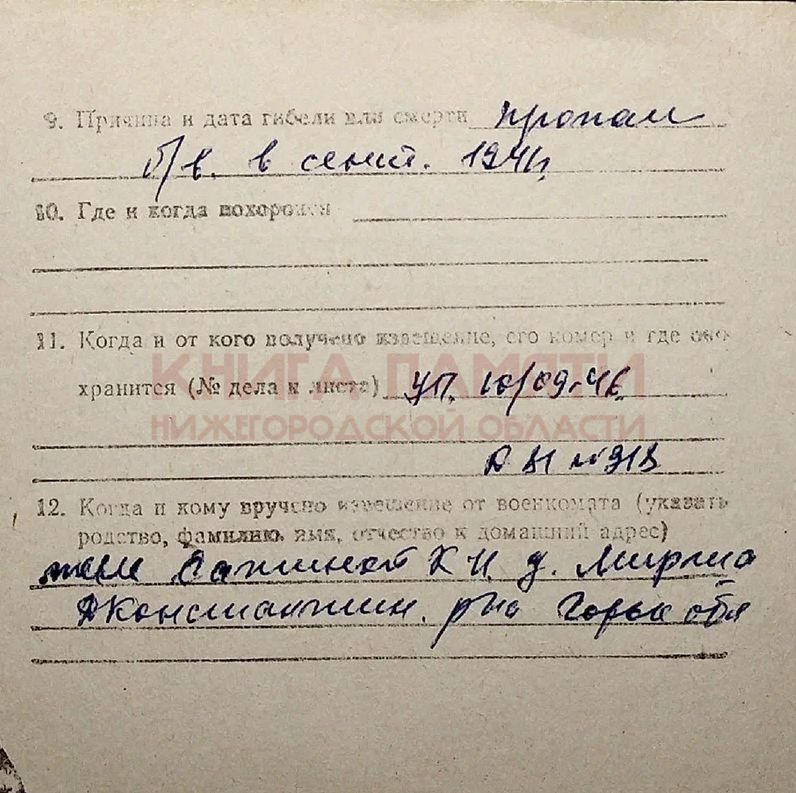 9. Причина и дата гибели или смерти пропал
б/в. в сент. 1941г.
10. Где и когда похоронен
11. Когда и от кого получено извещение, его номер и где оно
КНИГА ПАМЯТИ
хранится (№ дела и листа) уп. 10/09-46
НИЖЕГОРОДСКОЙ ОБЛАСТИ
12. Когда и кому вручено извещение от военкомата (указать
родство, фамилию, имя, отчество и домашний адрес)
жене К И. д.
р-на Горьк обл